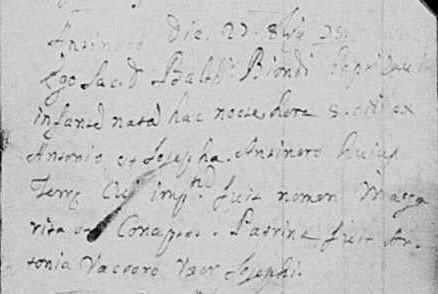 Ansinero Die. 27. 8bris
Ego Sac. D. Balth. Biondi Bap
infante nata hac nocte hora 8. ex
Antonio et Josepha Ansinero huius
Terre Cui imp. fuit nomen Marga
rita Patrina fuit An-
tonia Vaccaro Uxor Josephi.